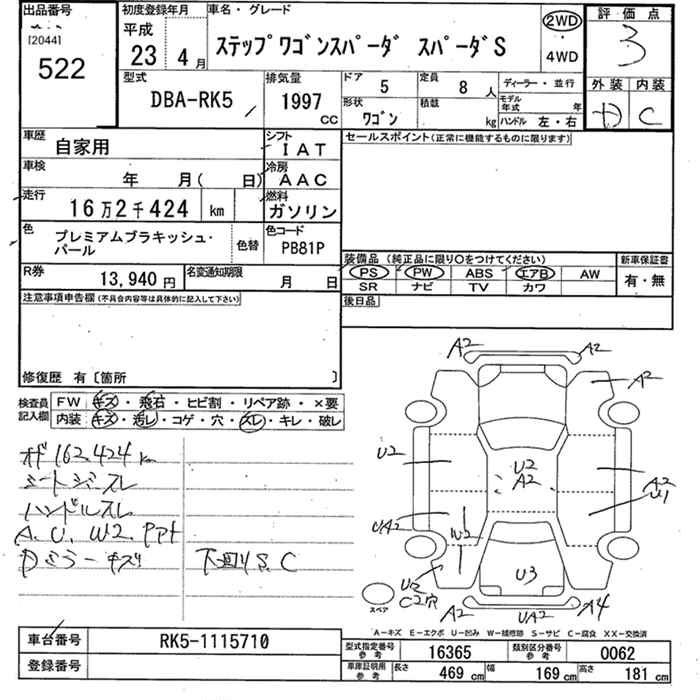 出品番号
[2044]
522
初度登録年月
平成
23 4月
車名・グレード
ステップワゴンスパーダ スパーダS
2WD
・
4WD
評価点
3
外装 内装
D C
型式
DBA-RK5
排気量
1997 cc
ドア 5
定員 8人
形状 ワゴン
積載 kg
ディーラー・並行
モデル年式 年
ハンドル 左・右
車歴 自家用
シフト IAT
セールスポイント(正常に機能するものに限ります)
車検 年 月( 日)
冷房 AAC
走行 16万2千424 km
燃料 ガソリン
色 プレミアムブラキッシュ・パール
色替
色コード PB81P
装備品(純正品に限り○をつけてください)
PS PW ABS エアB AW
SR ナビ TV カワ
新車保証書
有・無
R券 13,940円
名変通知期限 月 日
後日品
注意事項申告欄(不具合内容等は具体的に記入して下さい)
修復歴 有〔箇所 〕
検査員記入欄
FW キズ・飛石・ヒビ割・リペア跡・×要
内装 キズ・汚レ・コゲ・穴・スレ・キレ・破レ
162,424 km
シートジミスレ
ハンドルスレ
A、U、W2、
Dミラーキズ
下回りS、C
A2 A2
A2
U2
U2
A2
A2
U1
UA2
W2
U2
C2穴
U3
A2 UA2 A4
スペア
A-キズ E-エクボ U-凹み W-補修跡 S-サビ C-腐食 XX-交換済
車台番号 RK5-1115710
登録番号
型式指定番号 参考 16365
類別区分番号 参考 0062
車庫証明用 参考 長さ 469 cm 幅 169 cm 高さ 181 cm